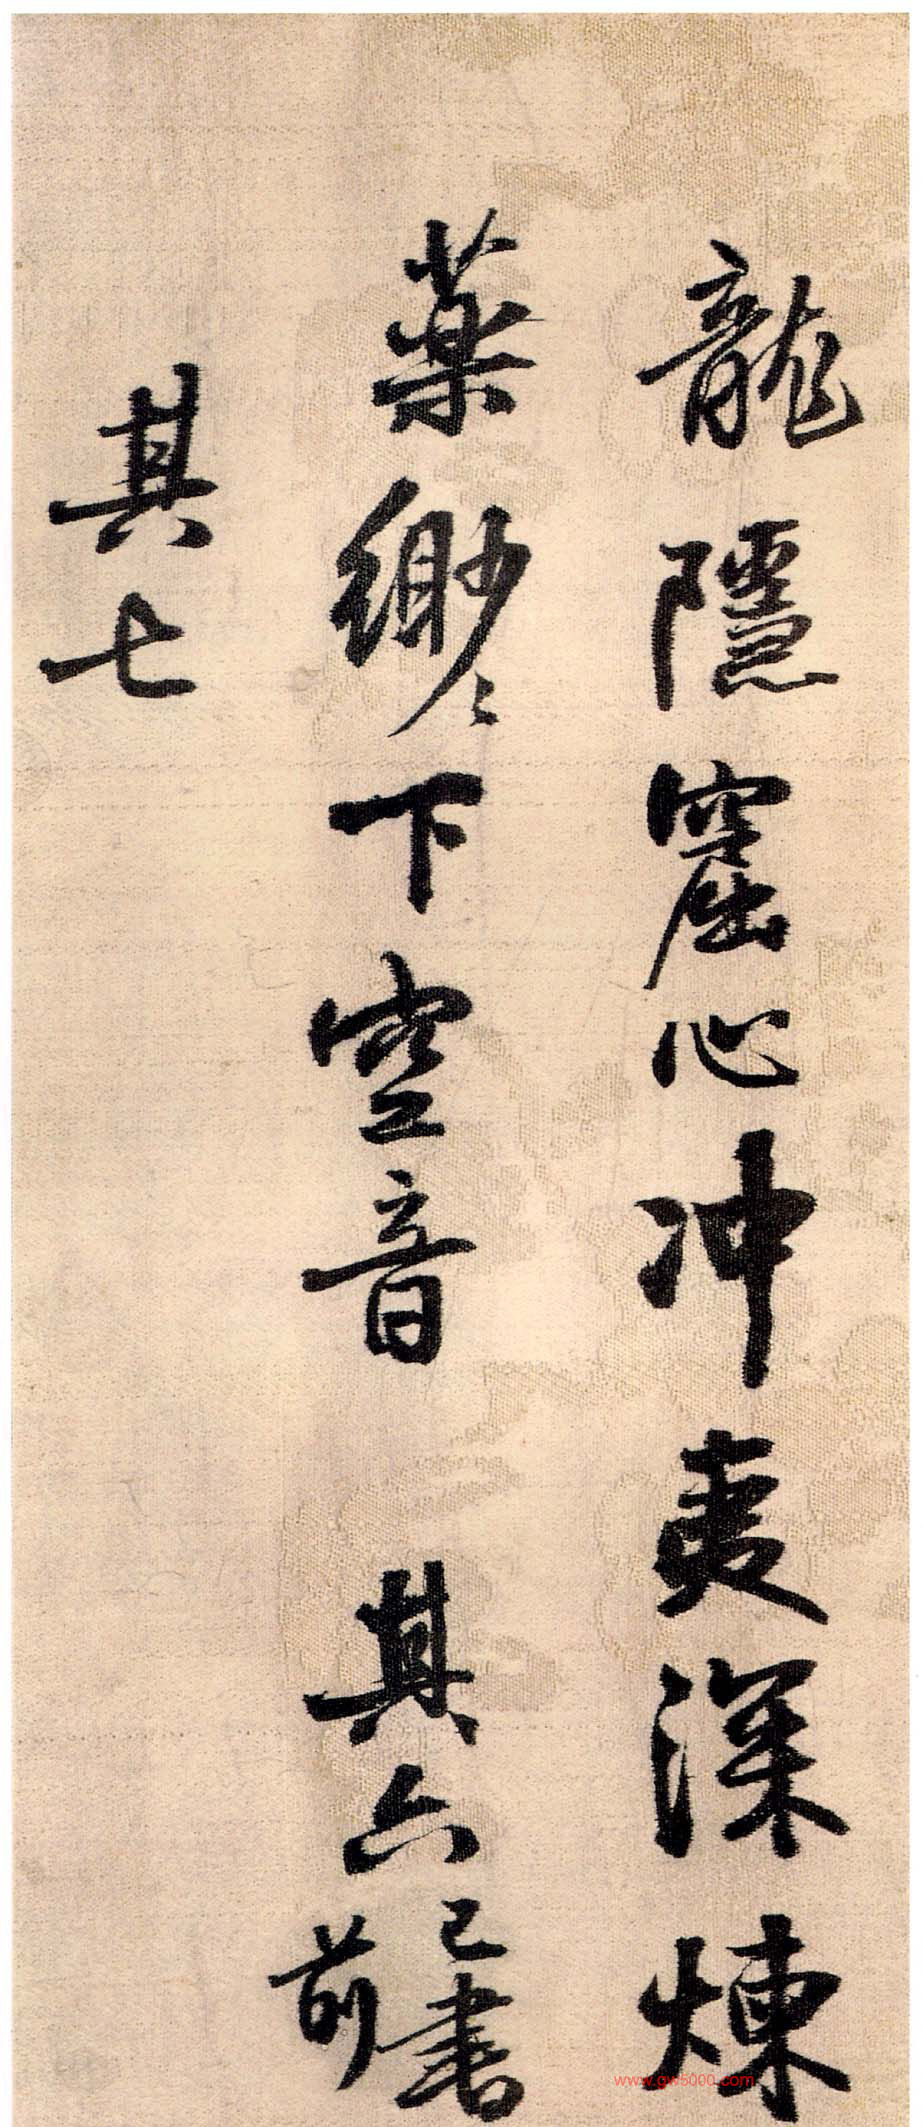 龍隱窟心冲夷深煉
薬緲〻下空音 其六
已書
前
其七
www.gw5000.com